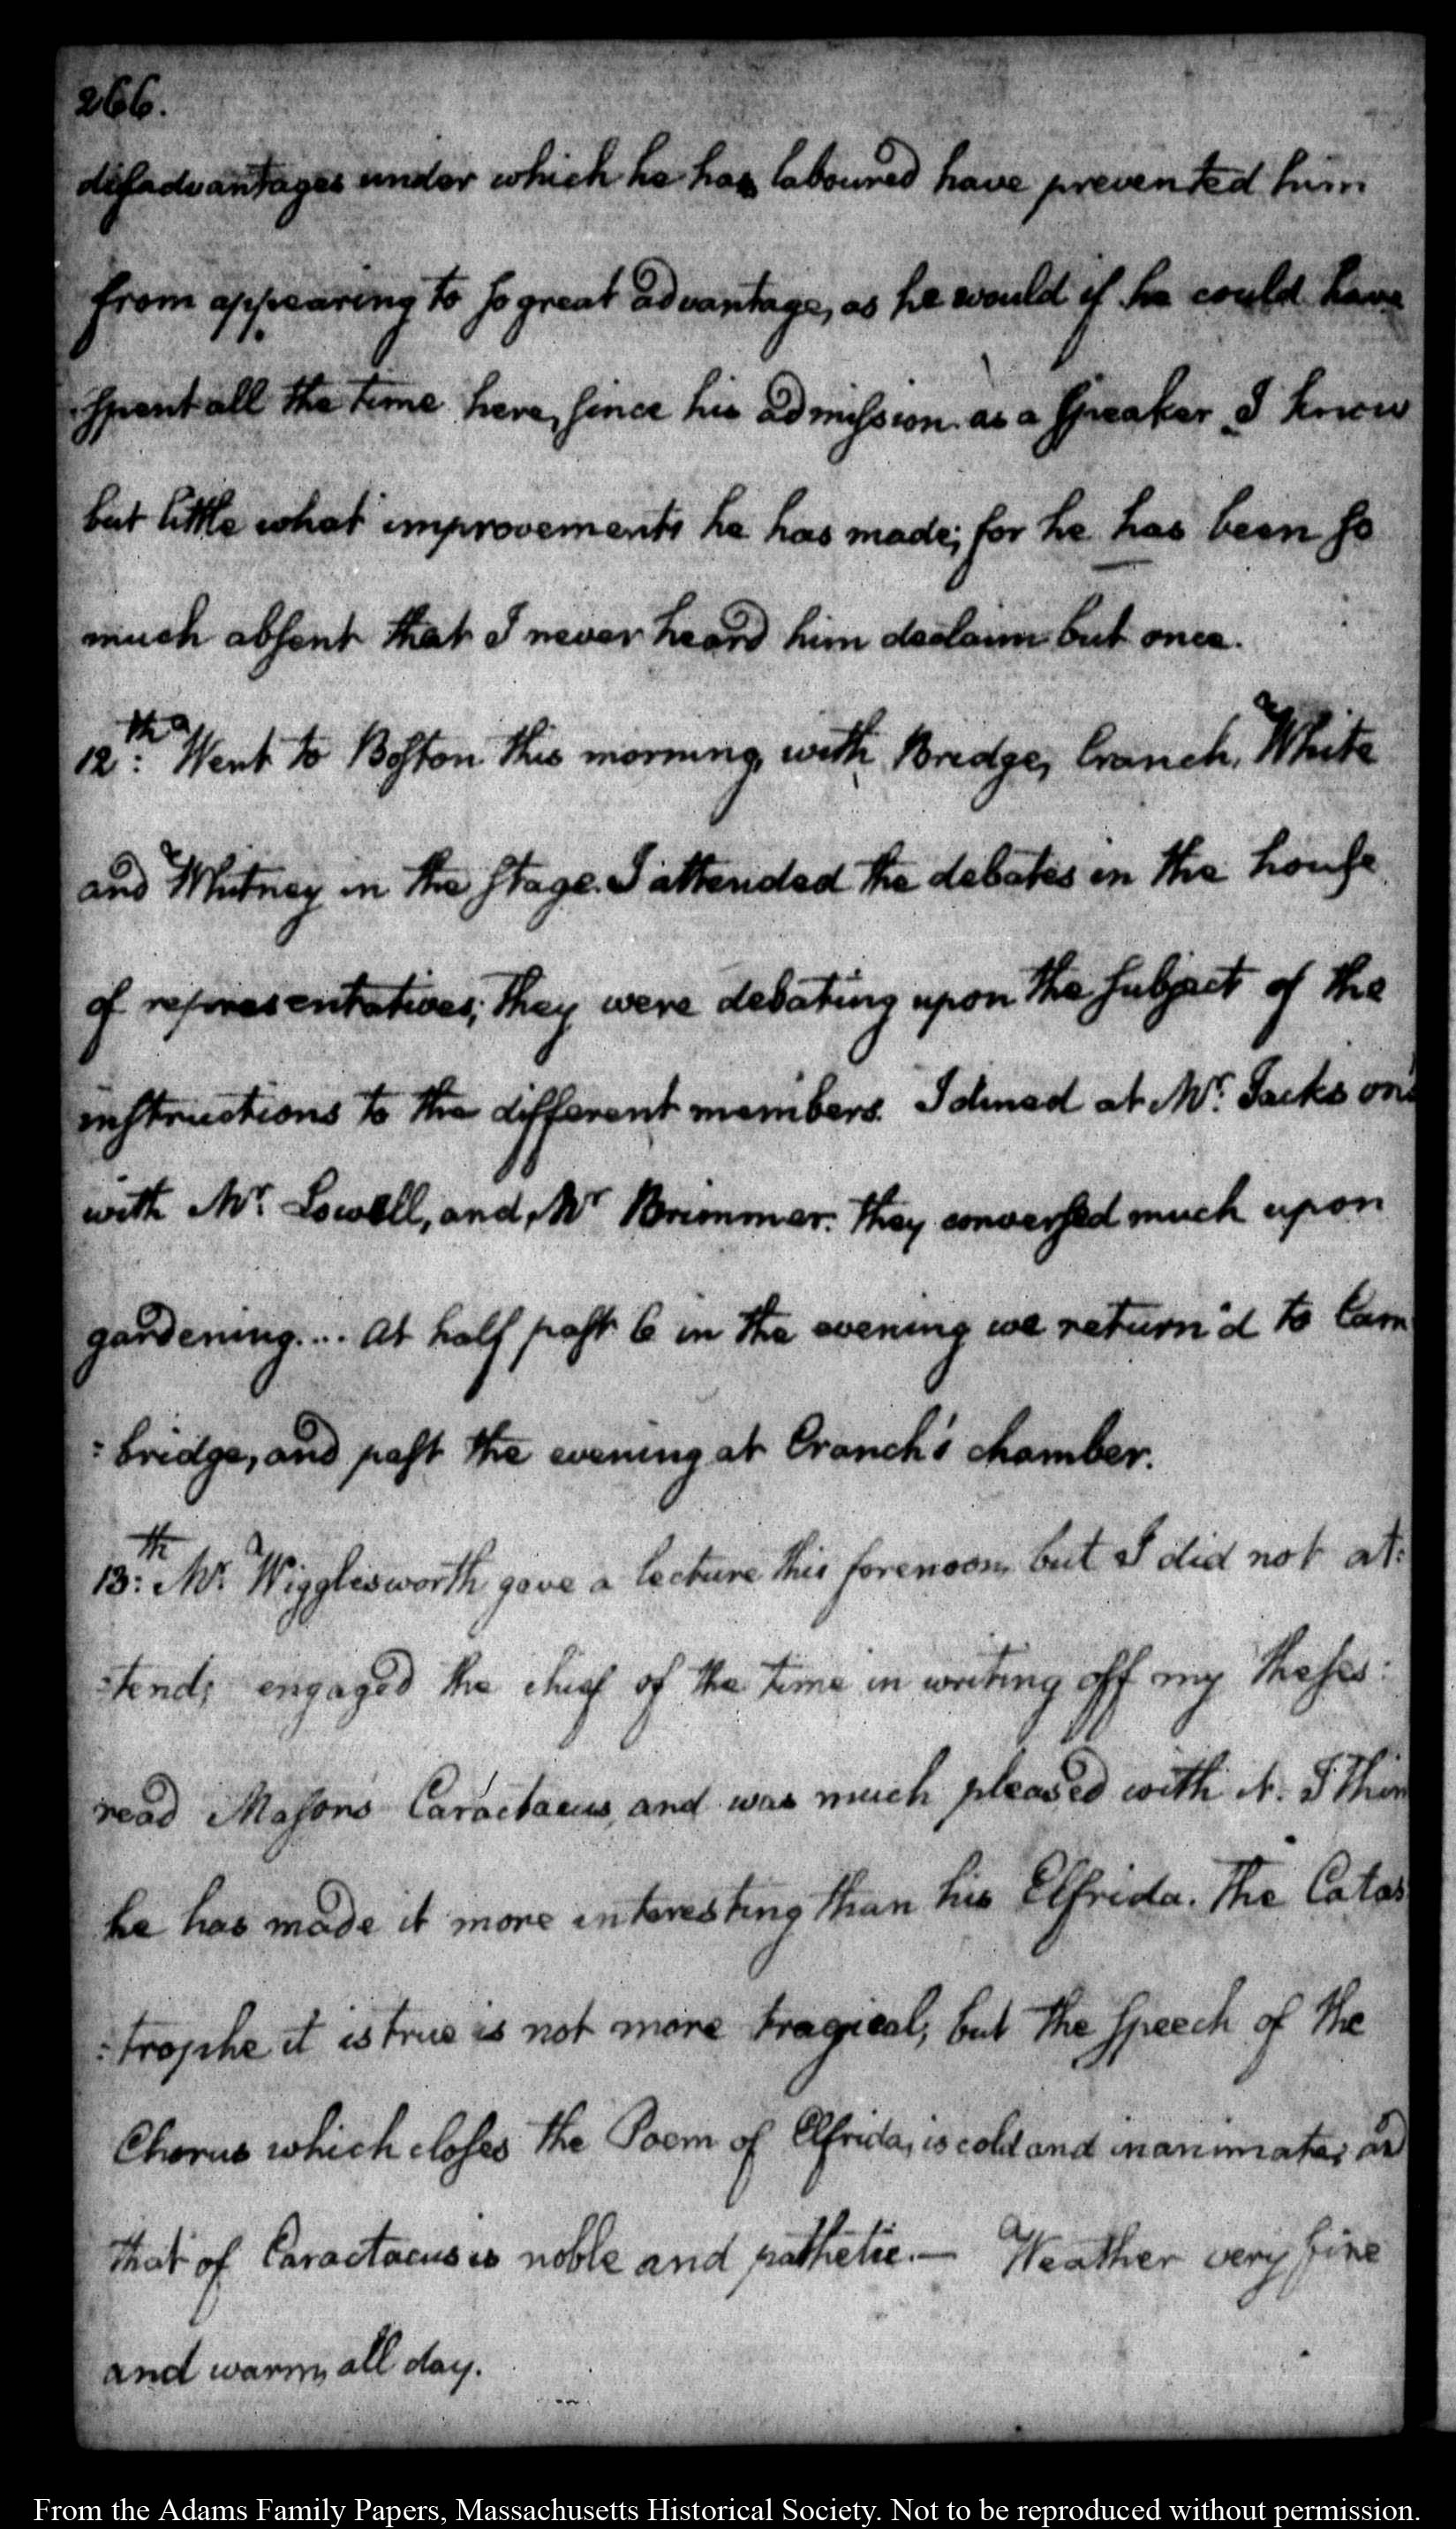 266.
disadvantages under which he has laboured have prevented him
from appearing to so great advantage, as he would if he could have
spent all the time here, since his admission. as a speaker I know
but little what improvements he has made; for he has been so
much absent that I never heard him declaim but once.
12th: Went to Boston this morning, with Bridge, Cranch, White
and Whitney in the stage. I attended the debates in the house
of representatives; they were debating upon the subject of the
instructions to the different members. I dined at Mr. Jackson's
with Mr. Lowell, and Mr Brimmer. They conversed much upon
gardening... At half past 6 in the evening we return'd to Cam
:bridge, and past the evening at Cranch's chamber.
13th: Mr. Wigglesworth gave a lecture this forenoon, but I did not at:
:tend; engaged the chief of the time in writing off my theses:
read Masons Caractacus, and was much pleased with it. I thin
he has made it more interesting than his Elfrida. The Catas
:trophe it is true is not more tragical; but the speech of the
Chorus which closes the Poem of Elfrida, is cold and inanimate; and
that of Caractacus is noble and pathetic.— Weather very fine
and warm, all day.
From the Adams Family Papers, Massachusetts Historical Society. Not to be reproduced without permission.